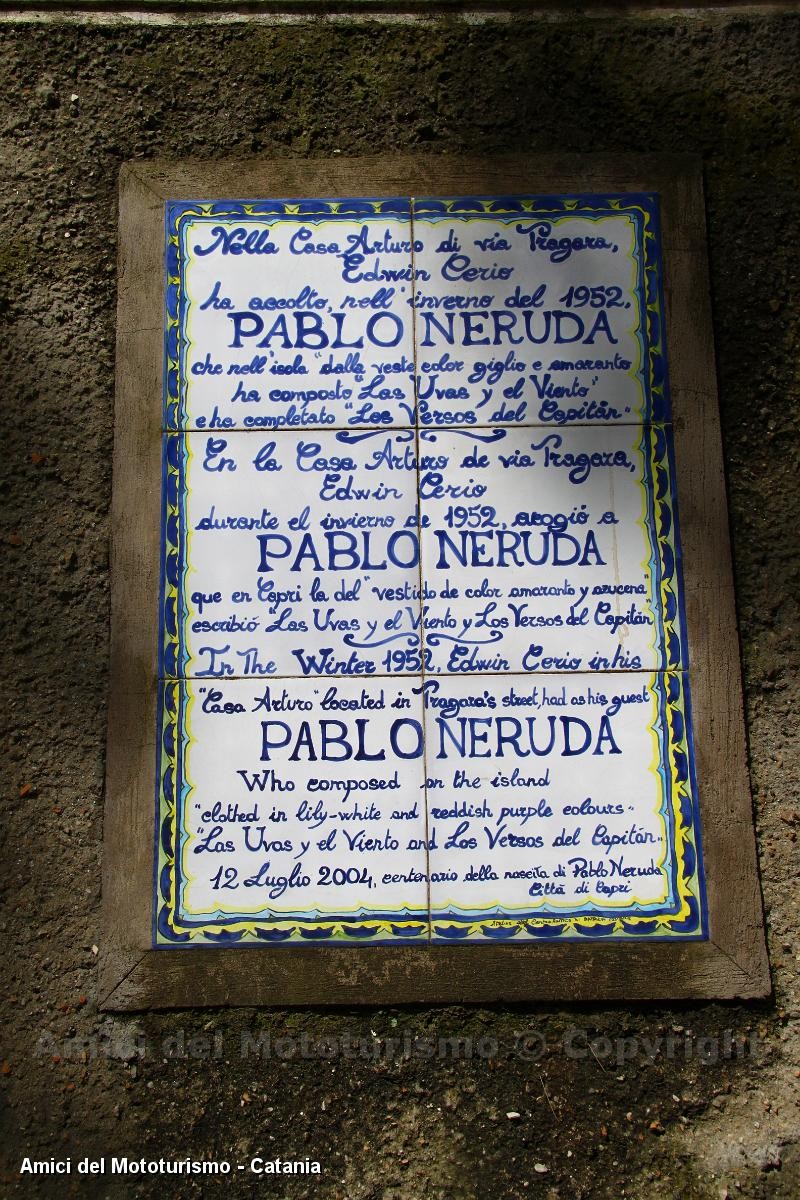 Nella Casa Arturo di via Tragara,
Edwin Cerio
ha accolto, nell'inverno del 1952,
PABLO NERUDA
che nell'isola "dalla veste color giglio e amaranto
ha composto "Las Uvas y el Viento"
e ha completato "Los Versos del Capitán"
En la Casa Arturo de via Tragara,
Edwin Cerio
durante el invierno de 1952, acogió a
PABLO NERUDA
que en Capri la del "vestido de color amaranto y azucena"
escribió "Las Uvas y el Viento y Los Versos del Capitán"
In The Winter 1952, Edwin Cerio in his
"Casa Arturo" located in Tragara's street, had as his guest
PABLO NERUDA
Who composed on the island
"clothed in lily-white and reddish purple colours"
"Las Uvas y el Viento and Los Versos del Capitán"
12 Luglio 2004, centenario della nascita di Pablo Neruda
Città di Capri
Amici del Mototurismo © Copyright
Amici del Mototurismo - Catania